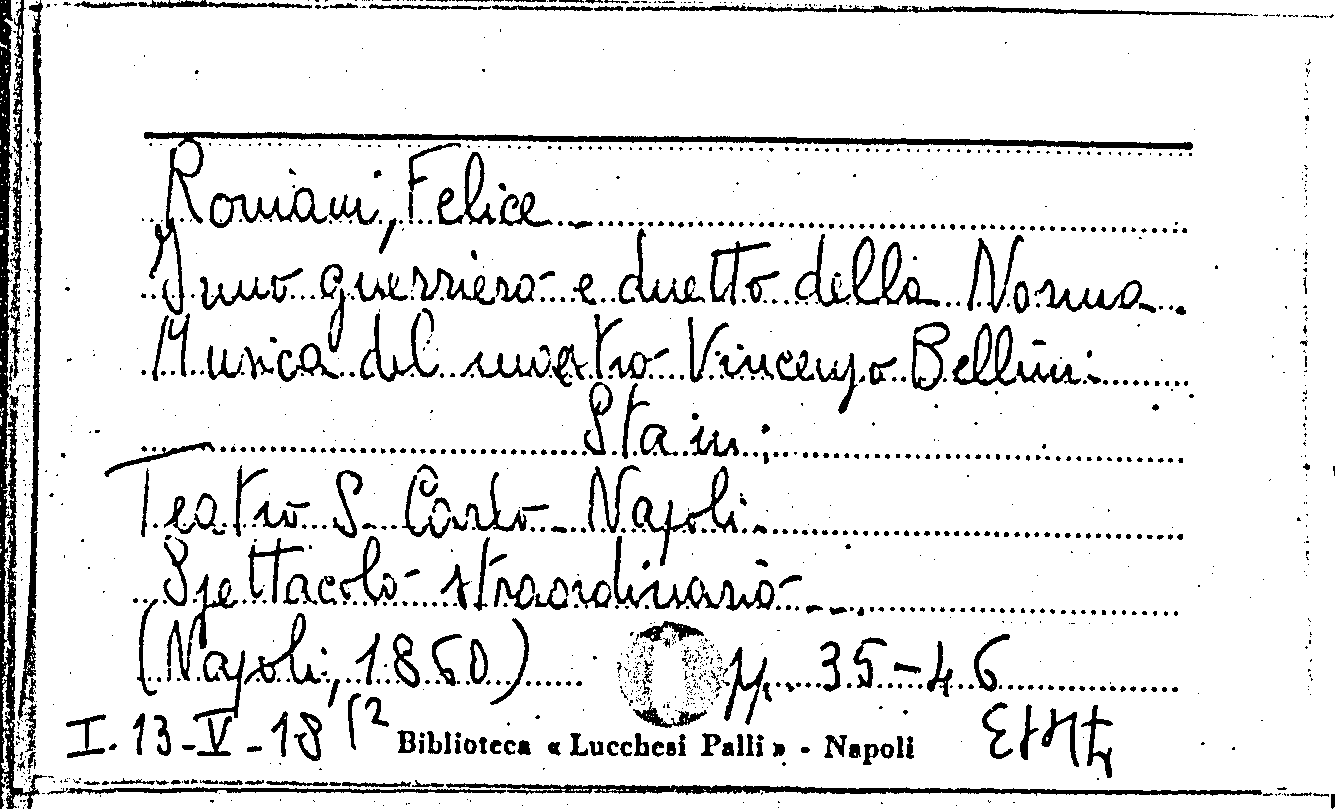 Romani, Felice -
Inno guerriero e duetto della Norma.
Musica del maestro Vincenzo Bellini.
Sta in:
Teatro S. Carlo - Napoli -
Spettacolo straordinario - ...
(Napoli, 1860) pp. 35-46
I. 13-V-18 Biblioteca « Lucchesi Palli » - Napoli